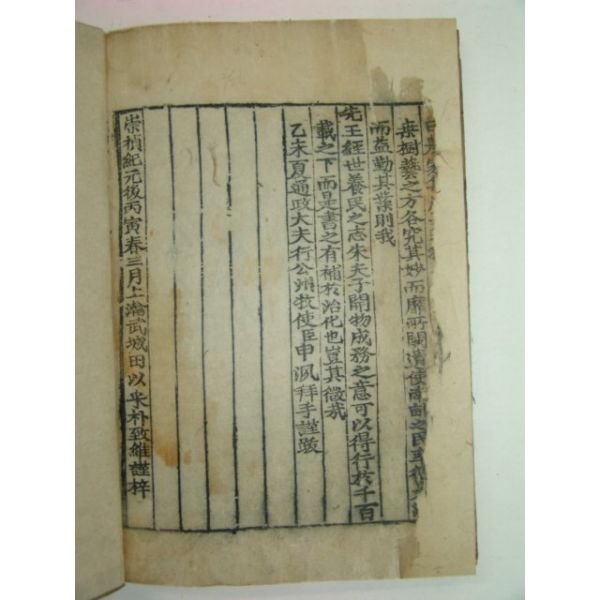 桑樹藝之方各究其妙而靡所闕遺使
而益勤其業則我
先王經世養民之志朱夫子開物成務之意可以得行於千百
載之下而是書之有補於治化也豈其微哉
乙未夏通政大夫行公州牧使臣申洬拜手謹跋
崇禎紀元後丙寅春三月上澣武城田以采朴致維謹梓